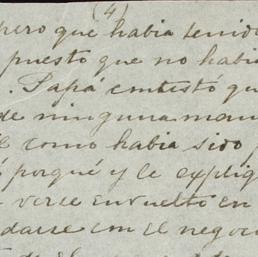 (4)
pero que habia tenido
puesto que no habia
. Papá contestó qu
de ninguna man
como habia sido
porqué y le expliq
verse envuelto en
darse con el negoc